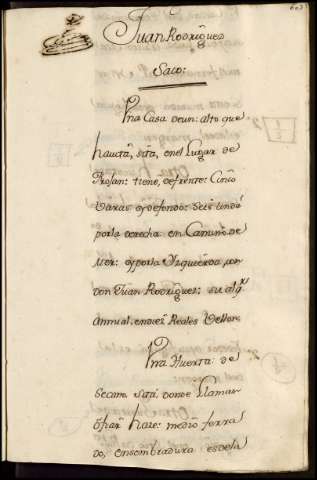 603
Juan Rodriguez
Saco:
Vna Casa deun: alto que
havita, sita, enel Lugar de
tiene, defrente: Cinco
varas, y defondo: Seis linda
porla derecha con Camino de
y porla Yzquierda con
don Juan Rodriguez: su alqr
annual, endiez Reales Vellon.
Vna Huerta: de
Secano, sita, donde Llaman
haze: medio ferra
do, ensembradura, esdela